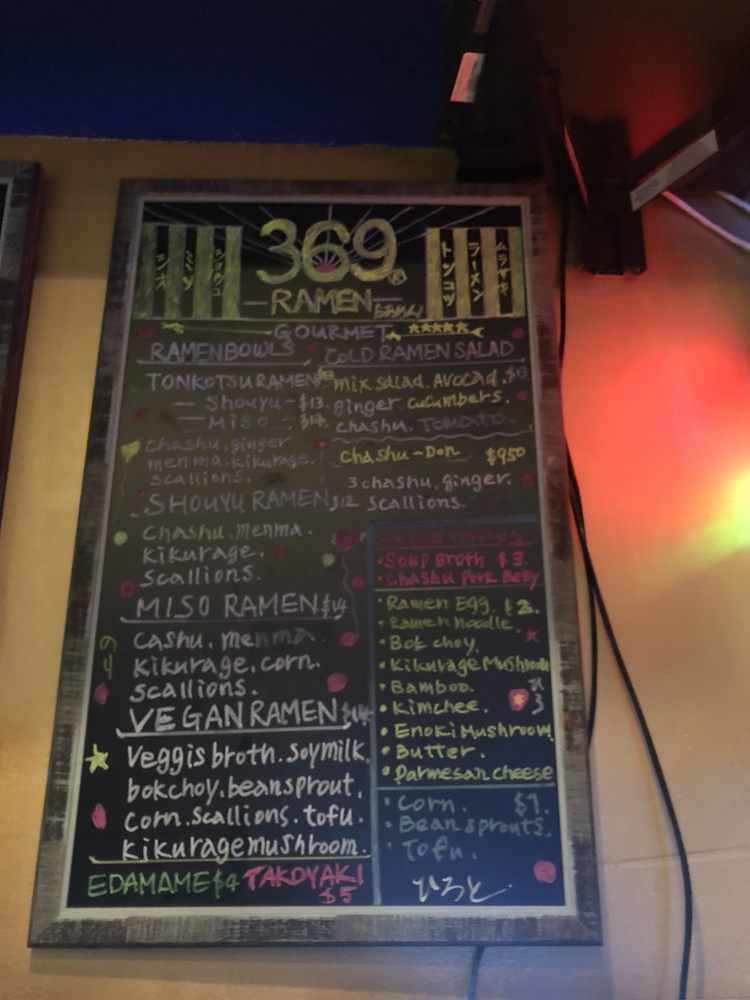 シオ
ミソ
ショウユ
369
RAMEN
らぁめん
トンコツ
ラーメン
ムラサキ
GOURMET
RAMEN BOWLS
TONKOTSU RAMEN
— Shouyu — $13.
— Miso — $14.
Chashu.ginger
menma.kikurage.
scallions.
SHOUYU RAMEN $12
Chashu.menma.
kikurage.
scallions.
MISO RAMEN $14
Cashu.menma
kikurage.corn.
scallions.
VEGAN RAMEN
Veggis broth.soymilk.
bokchoy.beansprout.
corn.scallions.tofu.
kikurage mushroom.
EDAMAME $4 TAKOYAKI
$5
COLD RAMEN SALAD
mix salad.Avocad.
ginger cucumbers.
chashu.TOMATO.
Chashu-Don $950
3 chashu.ginger.
scallions.
• Soup Broth $3.
• Chashu Pork Belly
• Ramen Egg. $2.
• Ramen noodle
• Bok choy.
• Kikurage Mushroom
• Bamboo.
• Kimchee.
• Enoki Mushroom
• Butter.
• Parmesan cheese
• Corn. $1.
• Bean sprouts.
• Tofu.
ひろと